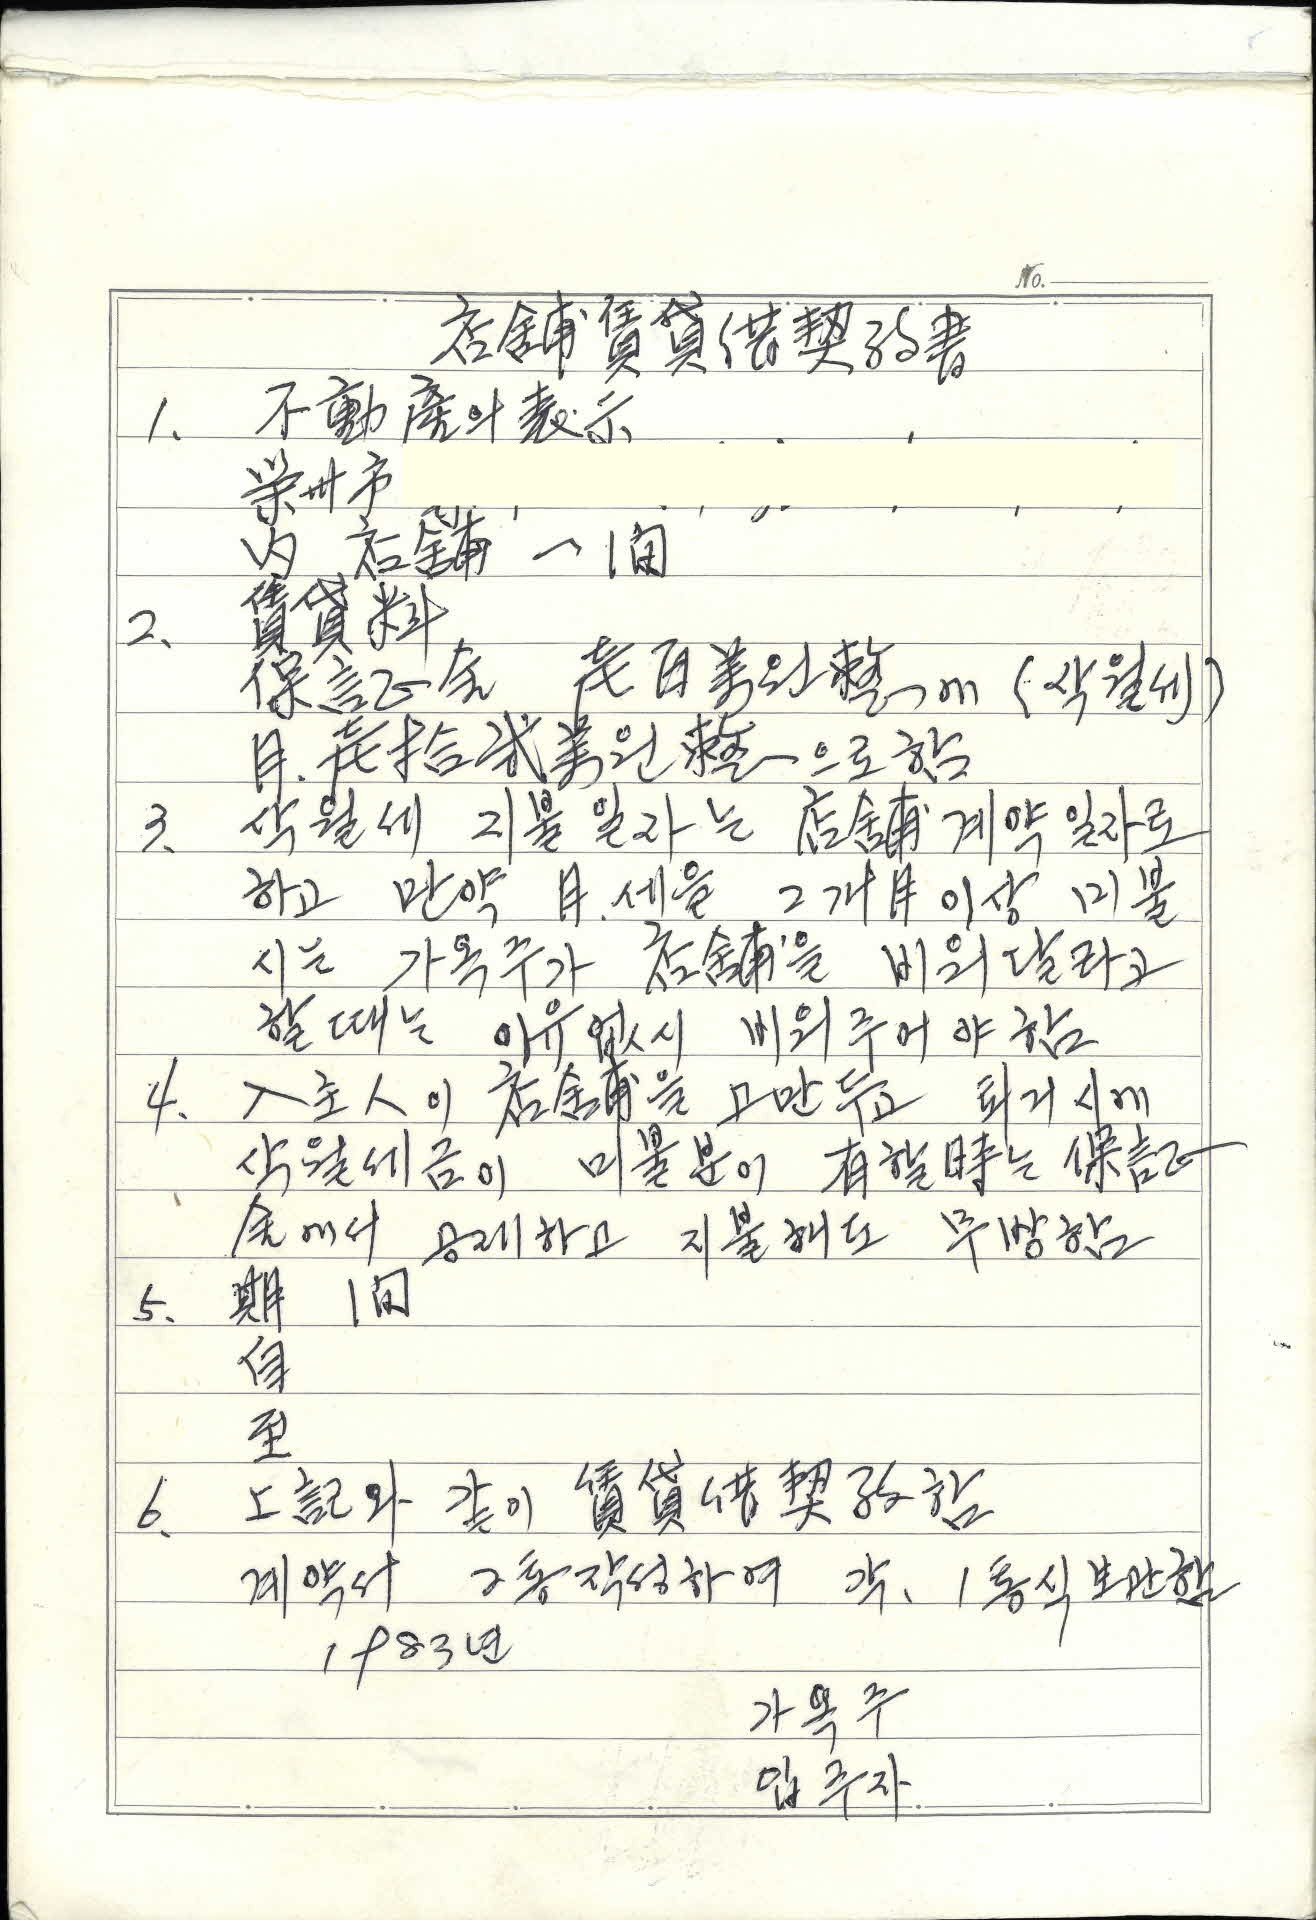 No.
店舖賃貸借契約書
1. 不動産의 表示
榮州市
內 店舖 一間
2. 賃貸料
保証金 壱百萬원整에 (삭월세)
月.壱拾弐萬원整으로함
3. 삭월세 지불일자는 店舖계약일자로
하고 만약 月.세을 2개月이상 미불
시는 가옥주가 店舖을 비워달라고
할때는 이유없시 비워주어야함
4. 入주人이 店舖을 고만두고 퇴거시에
삭월세금이 미불분이 有할時는 保証
金에서 공제하고 지불해도 무방함
5. 期 間
自
至
6. 上記와 같이 賃貸借契約함
계약서 2통작성하여 각、1통식보관함
1983년
가옥주
입주자